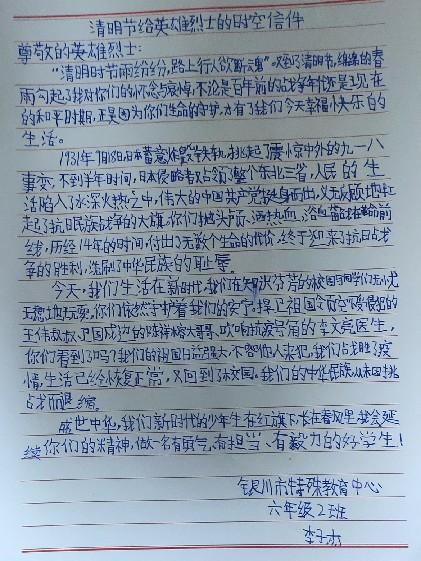 清明节给英雄烈士的时空信件
尊敬的英雄烈士:
"清明时节雨纷纷,路上行人欲断魂"又到了清明节,绵绵的春
雨勾起了我对你们的怀念与哀悼,不论是百年前的战争年代还是现在
的和平时期,正是因为你们生命的守护,才有了我们今天幸福快乐的
生活。
1931年9月18日,日本蓄意炸毁铁轨,挑起了震惊中外的九一八
事变,不到半年时间,日本侵略者又占领了整个东北三省,人民的生
活陷入了水深火热之中,伟大的中国共产党挺身而出,义无反顾地扛
起了抗日民族战争的大旗,你们抛头颅、洒热血、浴血奋战在最前
线,历经14年的时间,付出了无数个生命的代价,终于迎来了抗日战
争的胜利,洗刷了中华民族的耻辱。
今天,我们生活在新时代,我们在知识芬芳的校园与同学们无忧
无虑地玩耍,你们依然守护着我们的安宁,捍卫祖国领空 的
王伟叔叔,卫国戍边的陈祥榕大哥哥,吹响抗疫号角的李文亮医生,
你们看到了吗?我们的祖国日益强大,不容他人来犯,我们战胜了疫
情,生活已经恢复正常,又回到了校园。我们的中华民族从未因挑
战而退缩。
盛世中华,我们新时代的少年生在红旗下,长在春风里,我会延
续你们的精神,做一名有勇气、有担当、有毅力的好学生!
银川市特殊教育中心
六年级2班
李子杰